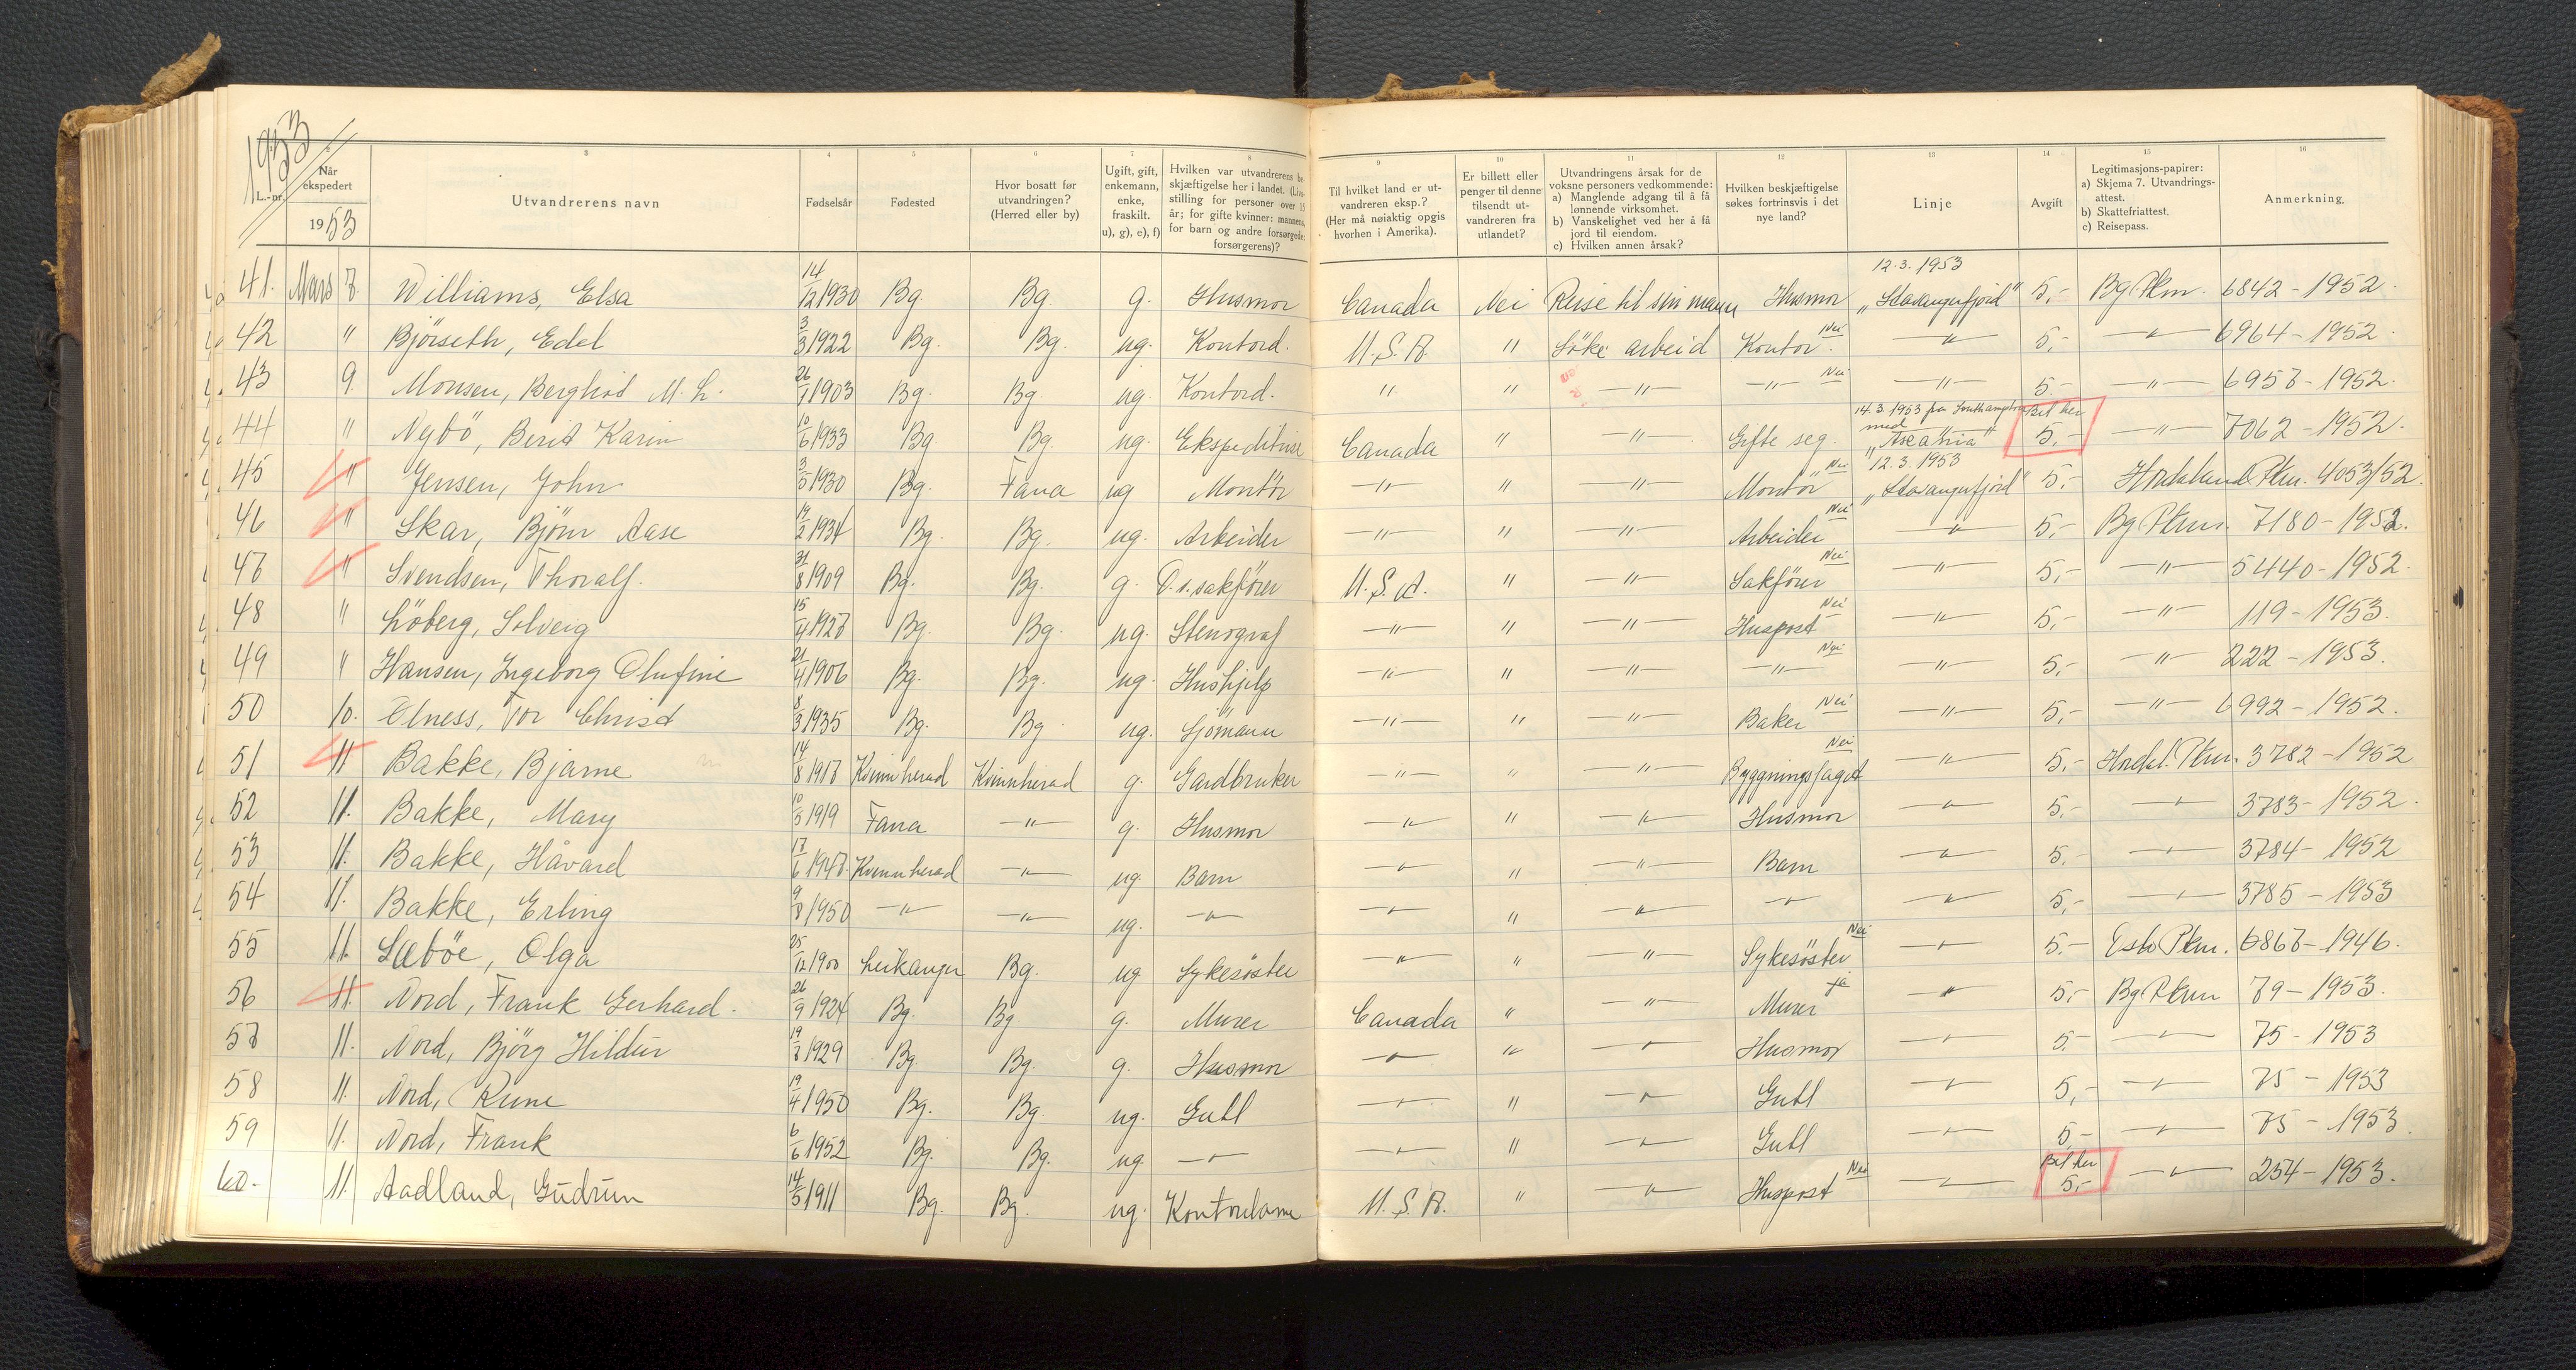 1953
L.-nr.
Når ekspedert
1953
3
Utvandrerens navn
4
Fødselsår
5
Fødested
6
Hvor bosatt før utvandringen? (Herred eller by)
7
Ugift, gift, enkemann, enke, fraskilt. u), g), e), f)
8
Hvilken var utvandrerens beskjæftigelse her i landet. (Livsstilling for personer over 15 år; for gifte kvinner: mannens, for barn og andre forsørgede: forsørgerens)?
9
Til hvilket land er utvandreren eksp.? (Her må nøiaktig opgis hvorhen i Amerika).
10
Er billett eller penger til denne tilsendt utvandreren fra utlandet?
11
Utvandringens årsak for de voksne personers vedkommende:
a) Manglende adgang til å få lønnende virksomhet.
b) Vanskelighet ved her å få jord til eiendom.
c) Hvilken annen årsak?
12
Hvilken beskjæftigelse søkes fortrinsvis i det nye land?
13
Linje
14
Avgift
15
Legitimasjons-papirer:
a) Skjema 7. Utvandringsattest.
b) Skattefriattest.
c) Reisepass.
16
Anmerkning.
41. Mars 7. Williams, Elsa 14/12 1930 Bg. Bg. g. Husmor Canada Nei Reise til sin mann Husmor 12.3.1953 "Stavangerfjord" 5,- Bg Pkm. 6842-1952.
42 " Bjørseth, Edel 3/3 1922 Bg. Bg. ug. Kontord. U.S.A. " Söke arbeid Kontor. Nei -"- 5,- -"- 6964-1952.
43 9. Monsen, Berghot M. L. 26/1 1903 Bg. Bg. ug. Kontord. " " -"- -"- Nei -"- 5.- -"- 6957-1952.
44 " Nybö, Berit Karin 10/6 1933 Bg Bg. ug. Ekspeditrise Canada " -"- Gifte seg. 14.3.1953 fra Southampton med "Ascania" Bet her 5,- -"- 7062-1952.
45 " Jensen, John 3/5 1930 Bg. Fana ug Montör -"- " -"- Montör Nei 12.3.1953 "Stavangerfjord" 5,- Hordaland Pkm. 4053/52.
46 " Skar, Björn Aase 17/2 1934 Bg. Bg. ug. Arbeider -"- " -"- Arbeider Nei -"- 5,- Bg Pkm. 7180-1952.
47 " Svendsen, Thoralf. 31/8 1909 Bg. Bg. g. O.r.sakförer U.S.A. " -"- Sakförer Nei -"- 5,- -"- 5440-1952.
48 " Löberg, Solveig 15/4 1927 Bg. Bg. ug. Stenograf -"- " -"- Huspost Nei -"- 5,- -"- 119-1953.
49 " Hansen, Ingeborg Olufine 21/4 1906 Bg. Bg. ug. Hushjelp -"- " -"- -"- Nei -"- 5,- -"- 222-1953.
50 10. Elness, Tor Christ 8/3 1935 Bg. Bg ug. Sjömann -"- " -"- Baker Nei -"- 5,- -"- 6992-1952.
51 11 Bakke, Bjarne 14/8 1917 Kvinnherad Kvinnherad g. Gardbruker -"- " -"- Byggningsfaget Nei -"- 5,- Hordal. Pkm. 3782-1952
52 11. Bakke, Mary 10/5 1919 Fana -"- g. Husmor -"- " -"- Husmor -"- 5,- -"- 3783-1952.
53 11. Bakke, Håvard 17/6 1947. Kvinnherad -"- ug. Barn -"- " -"- Barn -"- 5.- -"- 3784-1952
54 11. Bakke, Erling 9/8 1950 -"- -"- ug. -"- -"- " -"- -"- -"- 5,- -"- 3785-1953
55 11. Sæböe, Olga 25/12 1900 Leikanger Bg. ug Sykesöster -"- " -"- Sykesöster Nei -"- 5.- Oslo Pkm. 6867-1946.
56 11. Nord, Frank Gerhard. 26/9 1924 Bg. Bg g. Murer Canada " -"- Murer ja -"- 5,- Bg Pkm 79-1953.
57 11. Nord, Björg Hildur 19/8 1929 Bg. Bg. g. Husmor -"- " -"- Husmor -"- 5.- -"- 75-1953
58 11. Nord, Rune 19/4 1950 Bg. Bg. ug. Gutt -"- " -"- Gutt -"- 5,- -"- 75-1953
59 11. Nord, Frank 6/6 1952 Bg. Bg. ug. -"- -"- " -"- Gutt -"- 5,- -"- 75-1953.
60.- 11. Aadland, Gudrun 14/5 1911 Bg. Bg. ug. Kontordame U.S.A. " -"- Huspost Nei -"- Bet her 5,- -"- 254-1953.